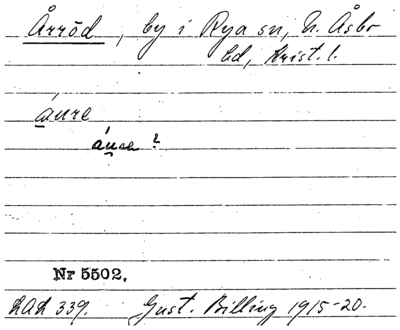 Årröd, by i Rya sn, N. Åsbo
hd, Krist. l.
áure
áure ?
Nr 5502.
LAL 339. Gust. Billing 1915-20.